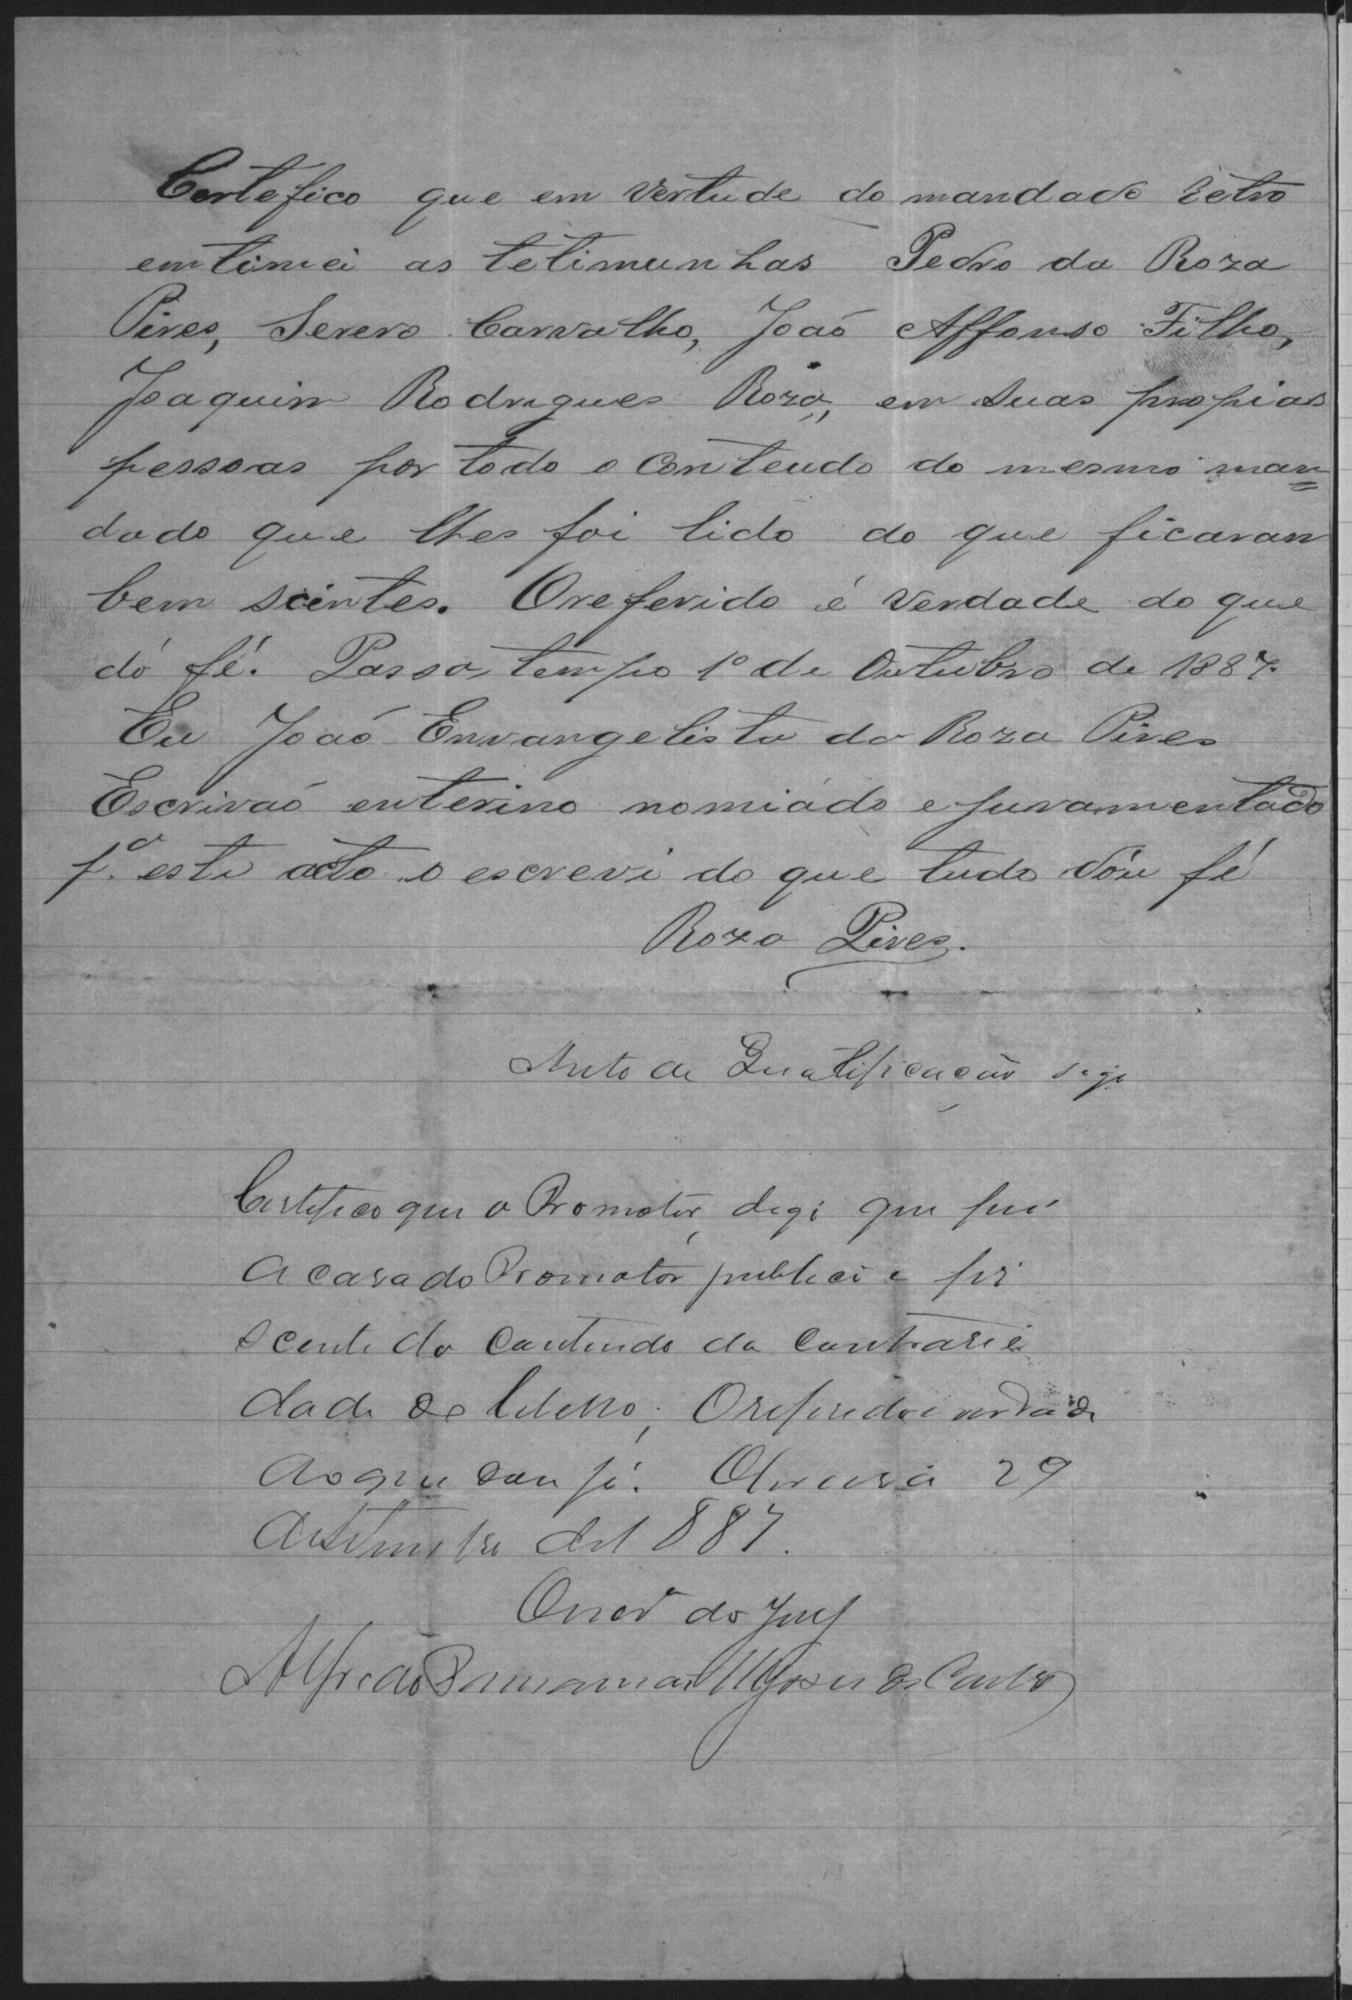 Certefico que em vertude do mandado retro
emtimei as tetimunhas Pedro da Roza
Pires, Severo Carvalho, João Affonso Filho,
Joaquim Rodrigues Roza, em suas propias
pessoas por todo o conteudo do mesmo man=
dado que lhes foi lido do que ficaram
bem scientes. O referido é verdade do que
dó fé. Passa tempo 1º de Outubro de 1887.
Eu João Envangelista da Roza Pires
Escrivaó enterino nomiádo e juramentado
p.ª este acto o escrevi do que tudo dóu fé
Roza Pires.
Auto de Qualificação segi
Certifico que o Promotor, degi que fui
a casa do Promotor publico e foi
scente do contendo da contrarie
dade de libello, O referido é verdade
do que dou fé. Oliveira 29
de Setembro de 1887.
do Jury
Alfredo de Castro